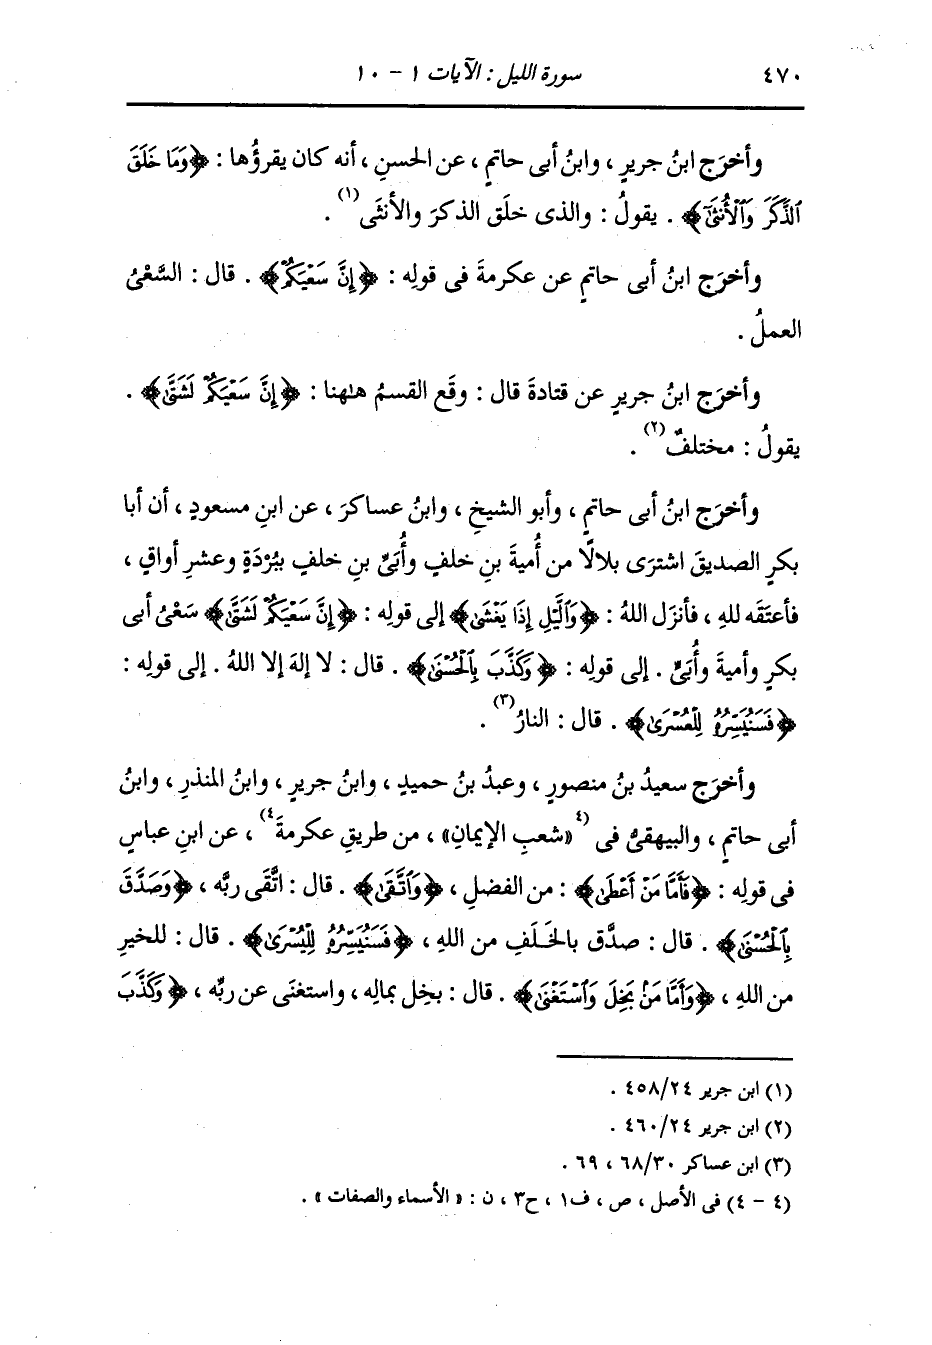 ٤٧٠ سورة الليل : الآيات ١ - ١٠
وأخرَج ابنُ جريرٍ ، وابنُ أبى حاتمٍ ، عن الحسنِ ، أنه كان يقرؤُها : ﴿وَمَا خَلَقَ
ٱلذَّكَرَ وَٱلْأُنثَىٰٓ﴾ . يقولُ : والذى خلَق الذكرَ والأنثَى(١) .
وأخرَج ابنُ أبى حاتمٍ عن عكرمةَ فى قولِه : ﴿إِنَّ سَعْيَكُمْ﴾ . قال : السَّعْىُ
العملُ .
وأخرَج ابنُ جريرٍ عن قتادةَ قال : وقَع القسمُ هلهنا : ﴿إِنَّ سَعْيَكُمْ لَشَتَّىٰ﴾ .
يقولُ : مختلفٌ(٢) .
وأخرَج ابنُ أبى حاتمٍ ، وأبو الشيخِ ، وابنُ عساكرَ ، عن ابنِ مسعودٍ ، أن أبا
بكرٍ الصديقَ اشترَى بلالًا من أُميةَ بنِ خلفٍ وأُبَىِّ بنِ خلفٍ ببُرْدَةٍ وعشرِ أواقٍ ،
فأعتَقه للهِ ، فأنزَل اللهُ : ﴿وَٱلَّيْلِ إِذَا يَغْشَىٰ﴾ إلى قولِه : ﴿إِنَّ سَعْيَكُمْ لَشَتَّىٰ﴾ سَعْىُ أبى
بكرٍ وأميةَ وأُبَىٍّ . إلى قولِه : ﴿وَكَذَّبَ بِٱلْحُسْنَىٰ﴾ . قال : لا إلهَ إلا اللهُ . إلى قولِه :
﴿فَسَنُيَسِّرُهُۥ لِلْعُسْرَىٰ﴾ . قال : النارُ(٣) .
وأخرَج سعيدُ بنُ منصورٍ ، وعبدُ بنُ حميدٍ ، وابنُ جريرٍ ، وابنُ المنذرِ ، وابنُ
أبى حاتمٍ ، والبيهقىُّ فى (٤«شعبِ الإيمانِ» ، من طريقِ عكرمةَ٤) ، عن ابنِ عباسٍ
فى قولِه : ﴿فَأَمَّا مَنْ أَعْطَىٰ﴾ : من الفضلِ ، ﴿وَٱتَّقَىٰ﴾ . قال : اتَّقَى ربَّه ، ﴿وَصَدَّقَ
بِٱلْحُسْنَىٰ﴾ . قال : صدَّق بالخَلَفِ من اللهِ ، ﴿فَسَنُيَسِّرُهُۥ لِلْيُسْرَىٰ﴾ . قال : للخيرِ
من اللهِ ، ﴿وَأَمَّا مَنۢ بَخِلَ وَٱسْتَغْنَىٰ﴾ . قال : بخِل بمالِه ، واستغنَى عن ربِّه ، ﴿وَكَذَّبَ
(١) ابن جرير ٤٥٨/٢٤ .
(٢) ابن جرير ٤٦٠/٢٤ .
(٣) ابن عساكر ٦٨/٣٠ ، ٦٩ .
(٤ - ٤) فى الأصل ، ص ، ف١ ، ح٣ ، ن : « الأسماء والصفات » .